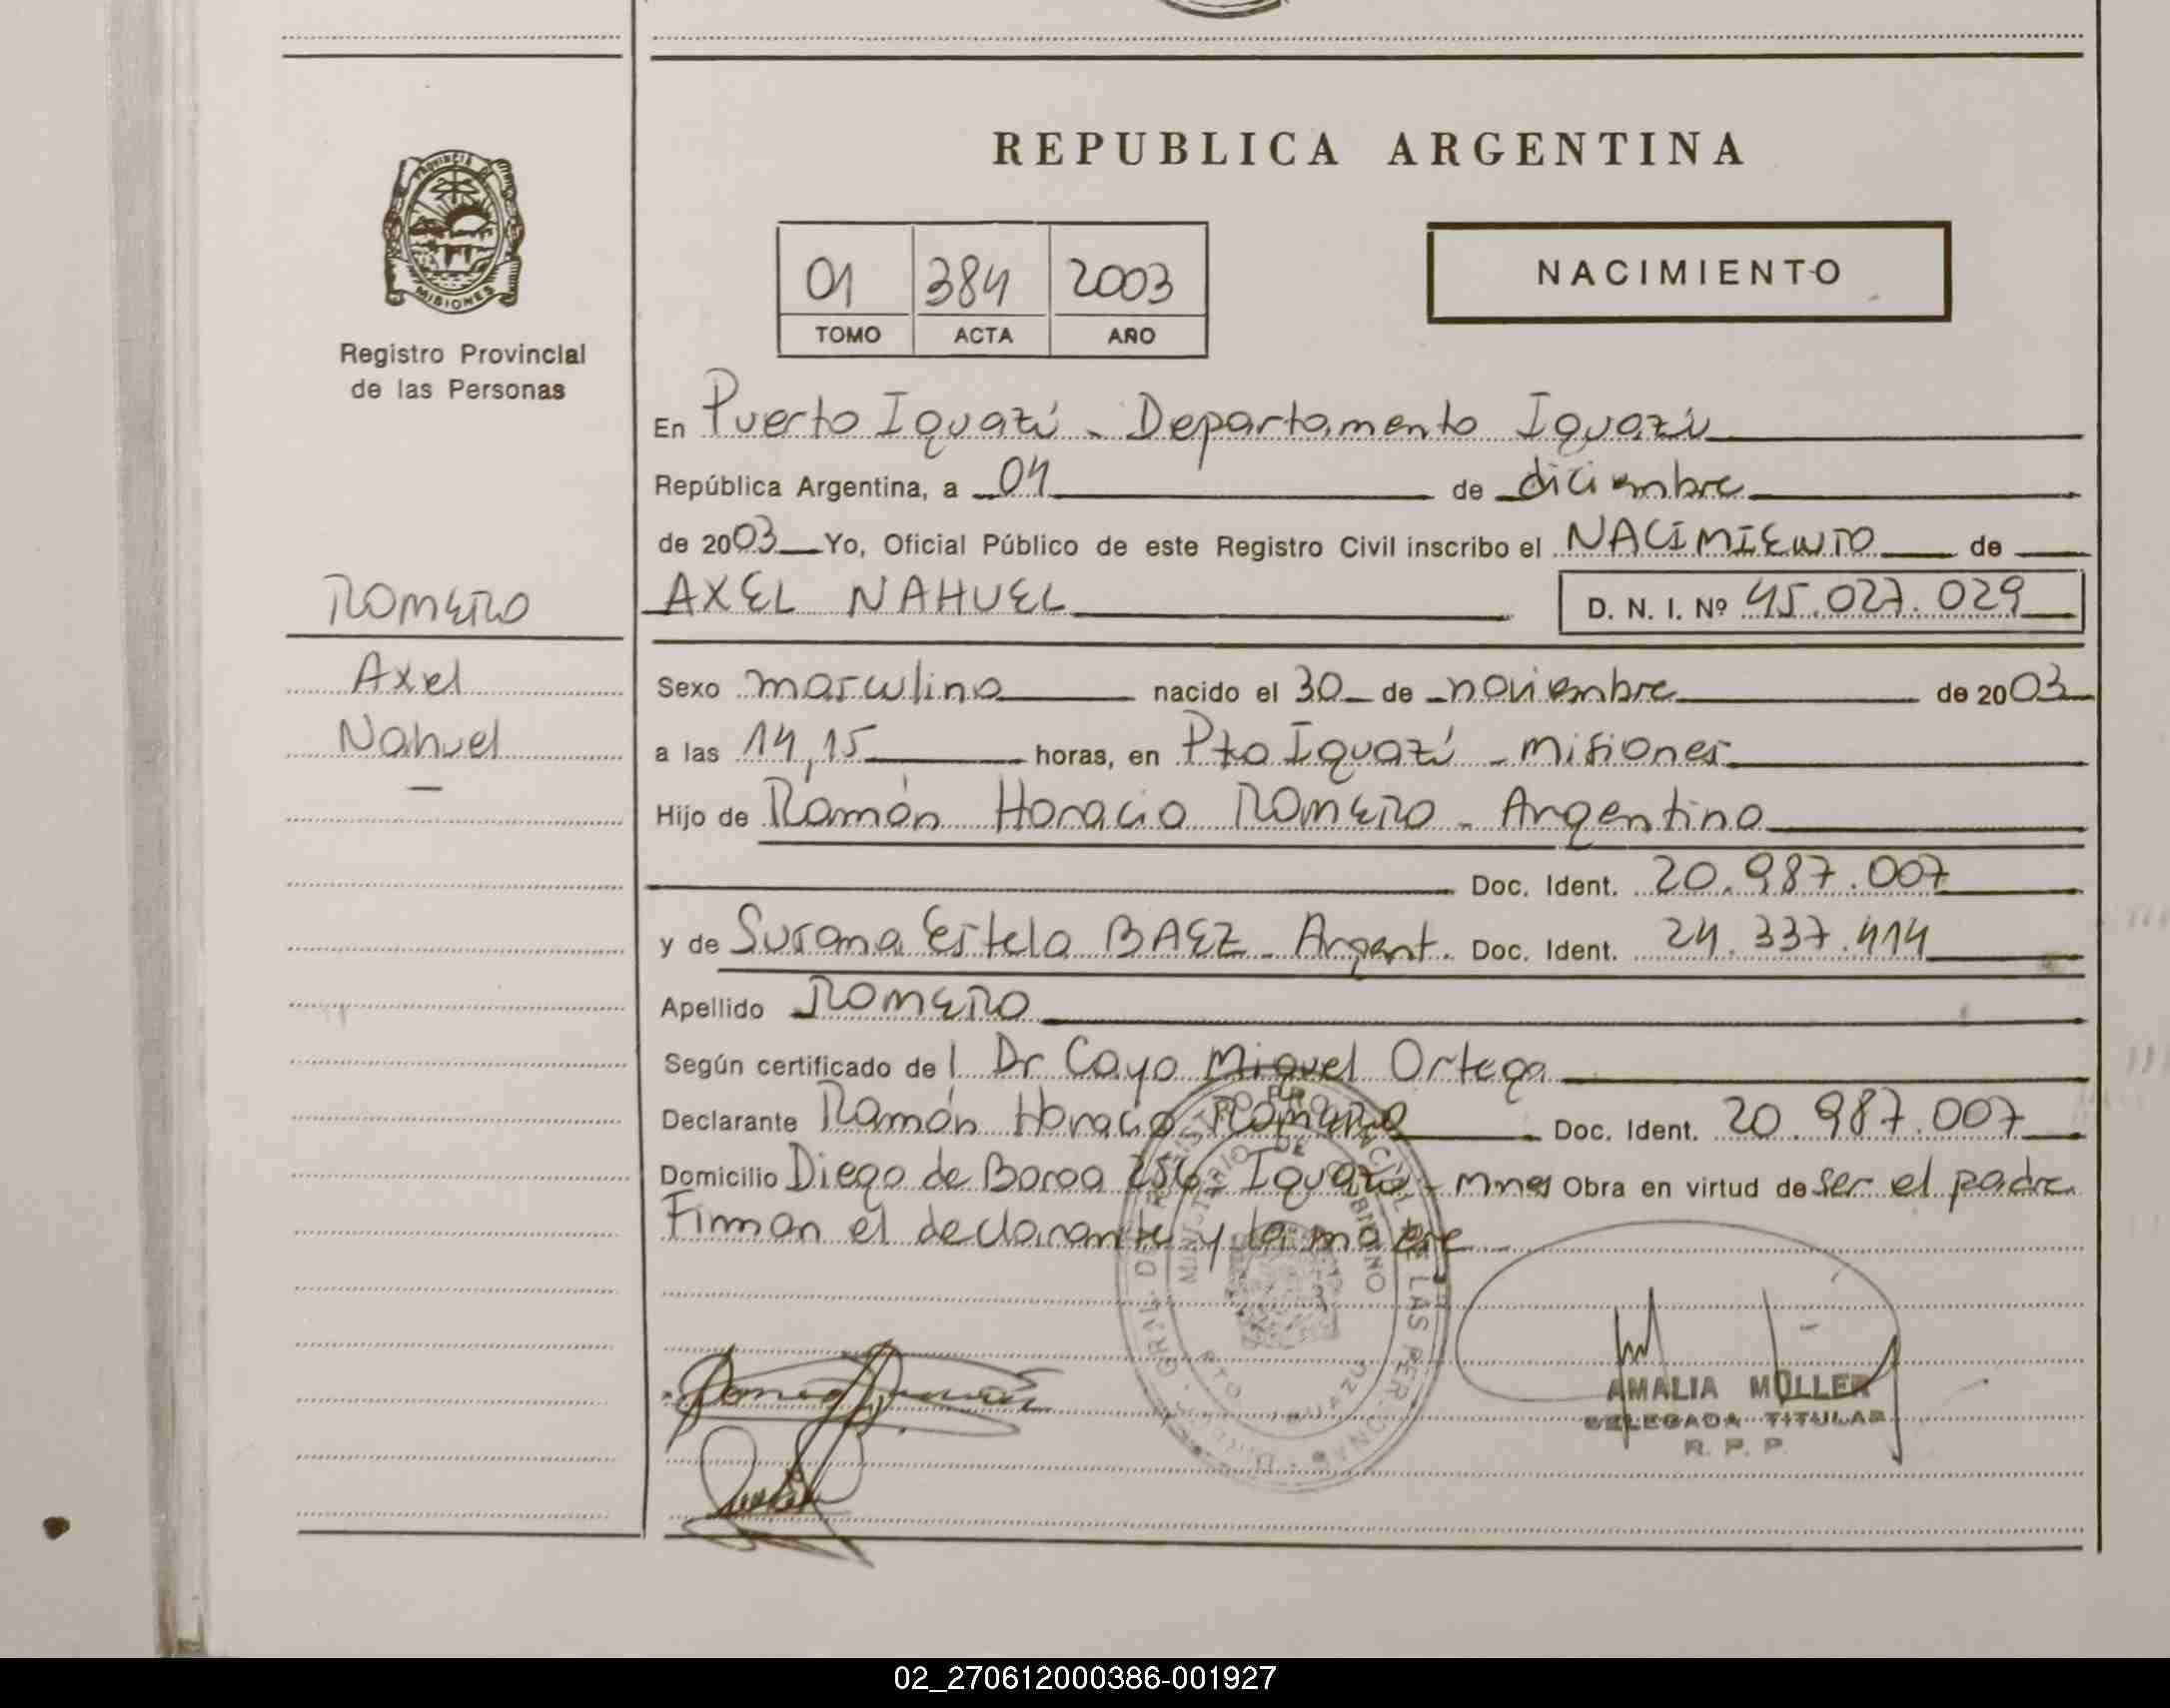 PROVINCIA DE
MISIONES
Registro Provincial
de las Personas
REPUBLICA ARGENTINA
01 384 2003
TOMO ACTA AÑO
NACIMIENTO
En Puerto Iguazú - Departamento Iguazú
República Argentina, a 04 de diciembre
de 2003 Yo, Oficial Público de este Registro Civil inscribo el NACIMIENTO de
ROMERO
AXEL NAHUEL D. N. I. Nº 45.027.029
Axel
Sexo masculino nacido el 30 de noviembre de 2003
Nahuel
a las 14,15 horas, en Pto Iguazú - Misiones
Hijo de Ramón Horacio ROMERO - Argentino
Doc. Ident. 20.987.007
y de Susana Estela BAEZ - Argent. Doc. Ident. 24.337.414
Apellido ROMERO
Según certificado de l Dr Cayo Miguel Ortega
Declarante Ramón Horacio Romero Doc. Ident. 20.987.007
Domicilio Diego de Boroa 256 - Iguazú - Mnes Obra en virtud de ser el padre
Firman el declarante y la madre
MINISTERIO DE GOBIERNO
AMALIA MÜLLER
DELEGADA TITULAR
R. P. P.
02_270612000386-001927